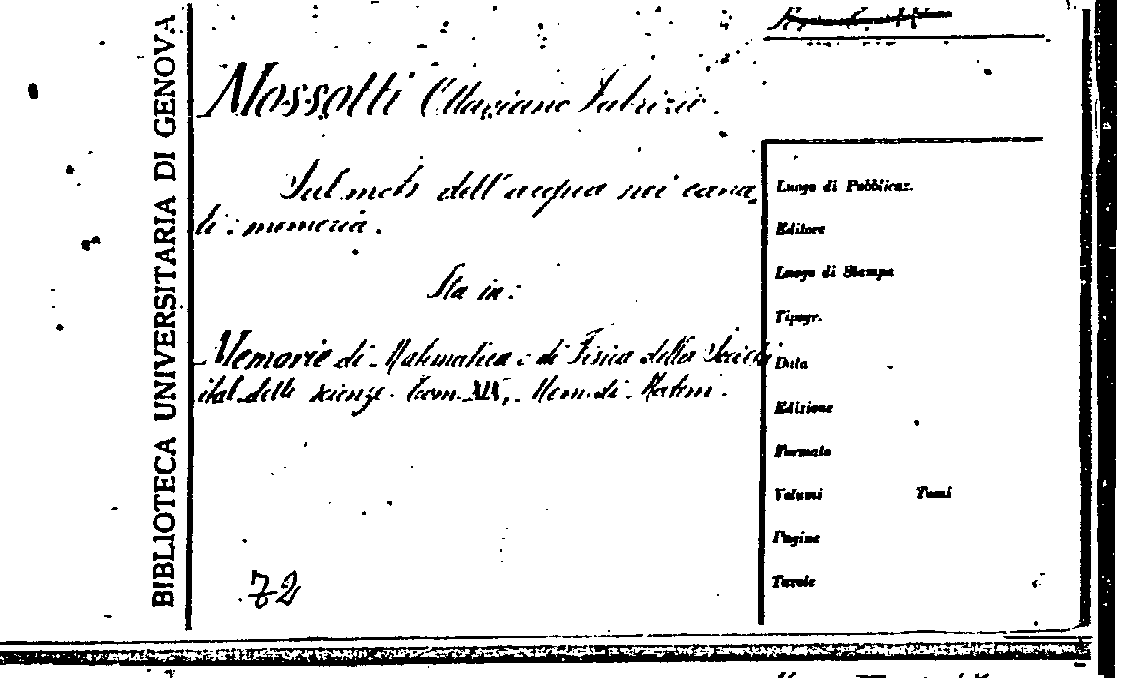 BIBLIOTECA UNIVERSITARIA DI GENOVA
Mossotti Ottaviano Fabrizio.
Sul moto dell'acqua nei cana_
li: memoria.
Sta in:
Memorie di Matematica e di Fisica della Società
ital. delle scienze. Tom. XIX, Mem. di Matem.
72
Luogo di Pubblicaz.
Editore
Luogo di Stampa
Tipogr.
Data
Edizione
Formato
Volumi Tomi
Pagine
Tavole